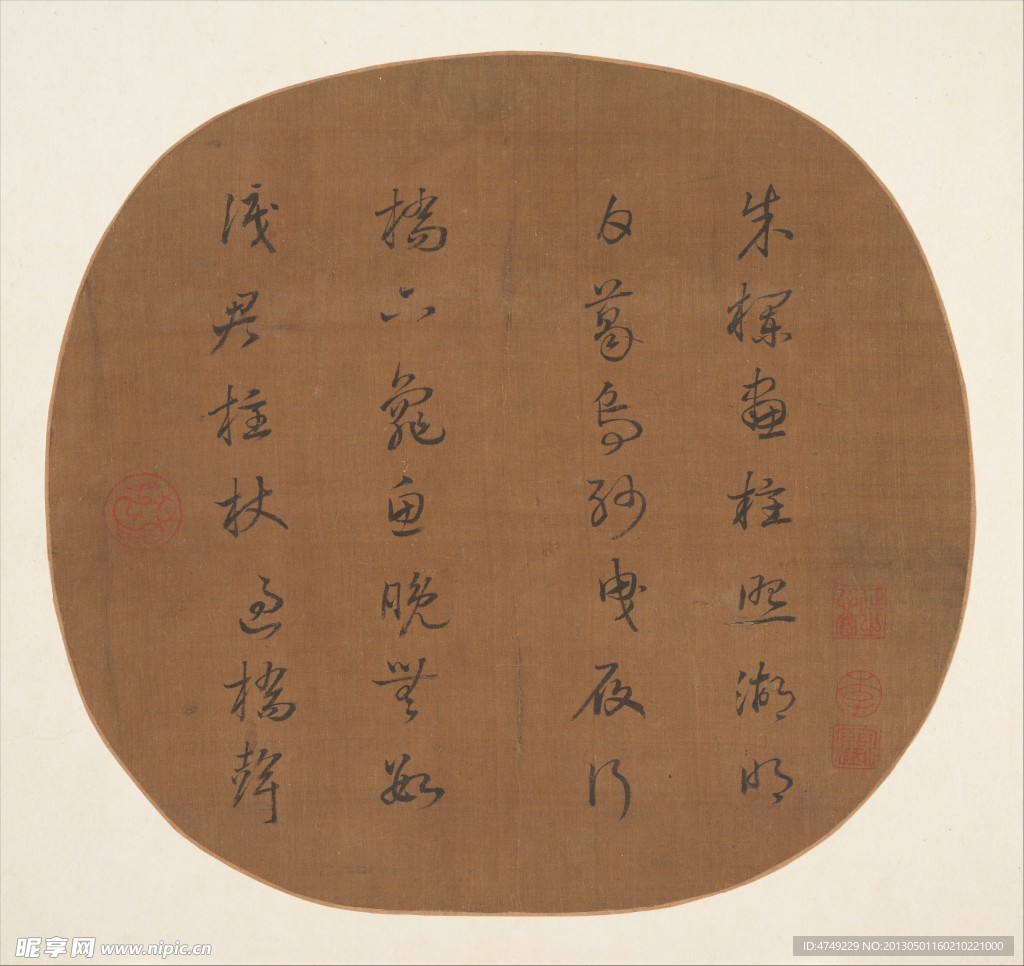 朱欄畫柱照湖明
白葛烏紗曳履行
橋下龜魚晚無數
識君柱杖過橋聲
昵享网 www.nipic.cn
ID:4749229 NO:20130501160210221000